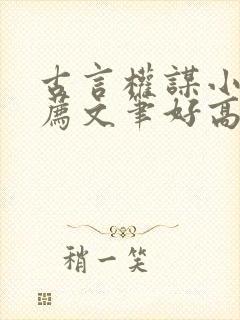 古言權謀小
薦文筆好高
稍一笑